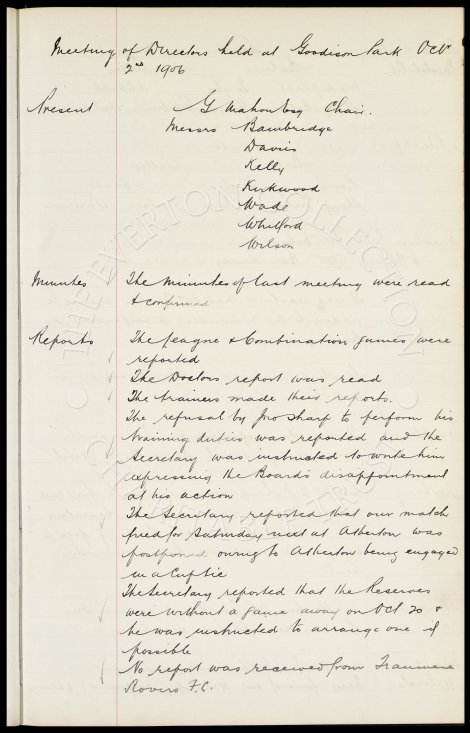 Meeting of Directors held at Goodison Park Octr
2nd 1906
Present G Mahon Esq Chair.
Messrs Bainbridge
Davies
Kelly
Kirkwood
Wade
Whitford
Wilson
Minutes The minutes of last meeting were read
& confirmed
Reports The League & Combination games were
reported
The Doctors report was read
The trainers made their reports.
The refusal by Jno Sharp to perform his
training duties was reported and the
Secretary was instructed to write him
expressing the Board's disappointment
at his action
The Secretary reported that our match
fixed for Saturday next at Atherton was
postponed owing to Atherton being engaged
in a Cup tie
The Secretary reported that the Reserves
were without a game away on Oct 20 &
he was instructed to arrange one if
possible
No report was received from Tranmere
Rovers F.C.
THE EVERTON COLLECTION